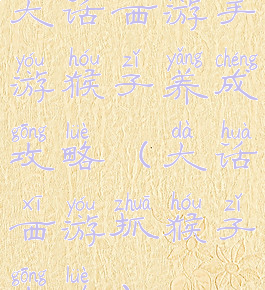 大话西游手
yóu hóu zǐ yǎng chéng
游猴子养成
gōng lüè dà huà
攻略(大话
xī yóu zhuā hóu zǐ
西游抓猴子
gōng lüè